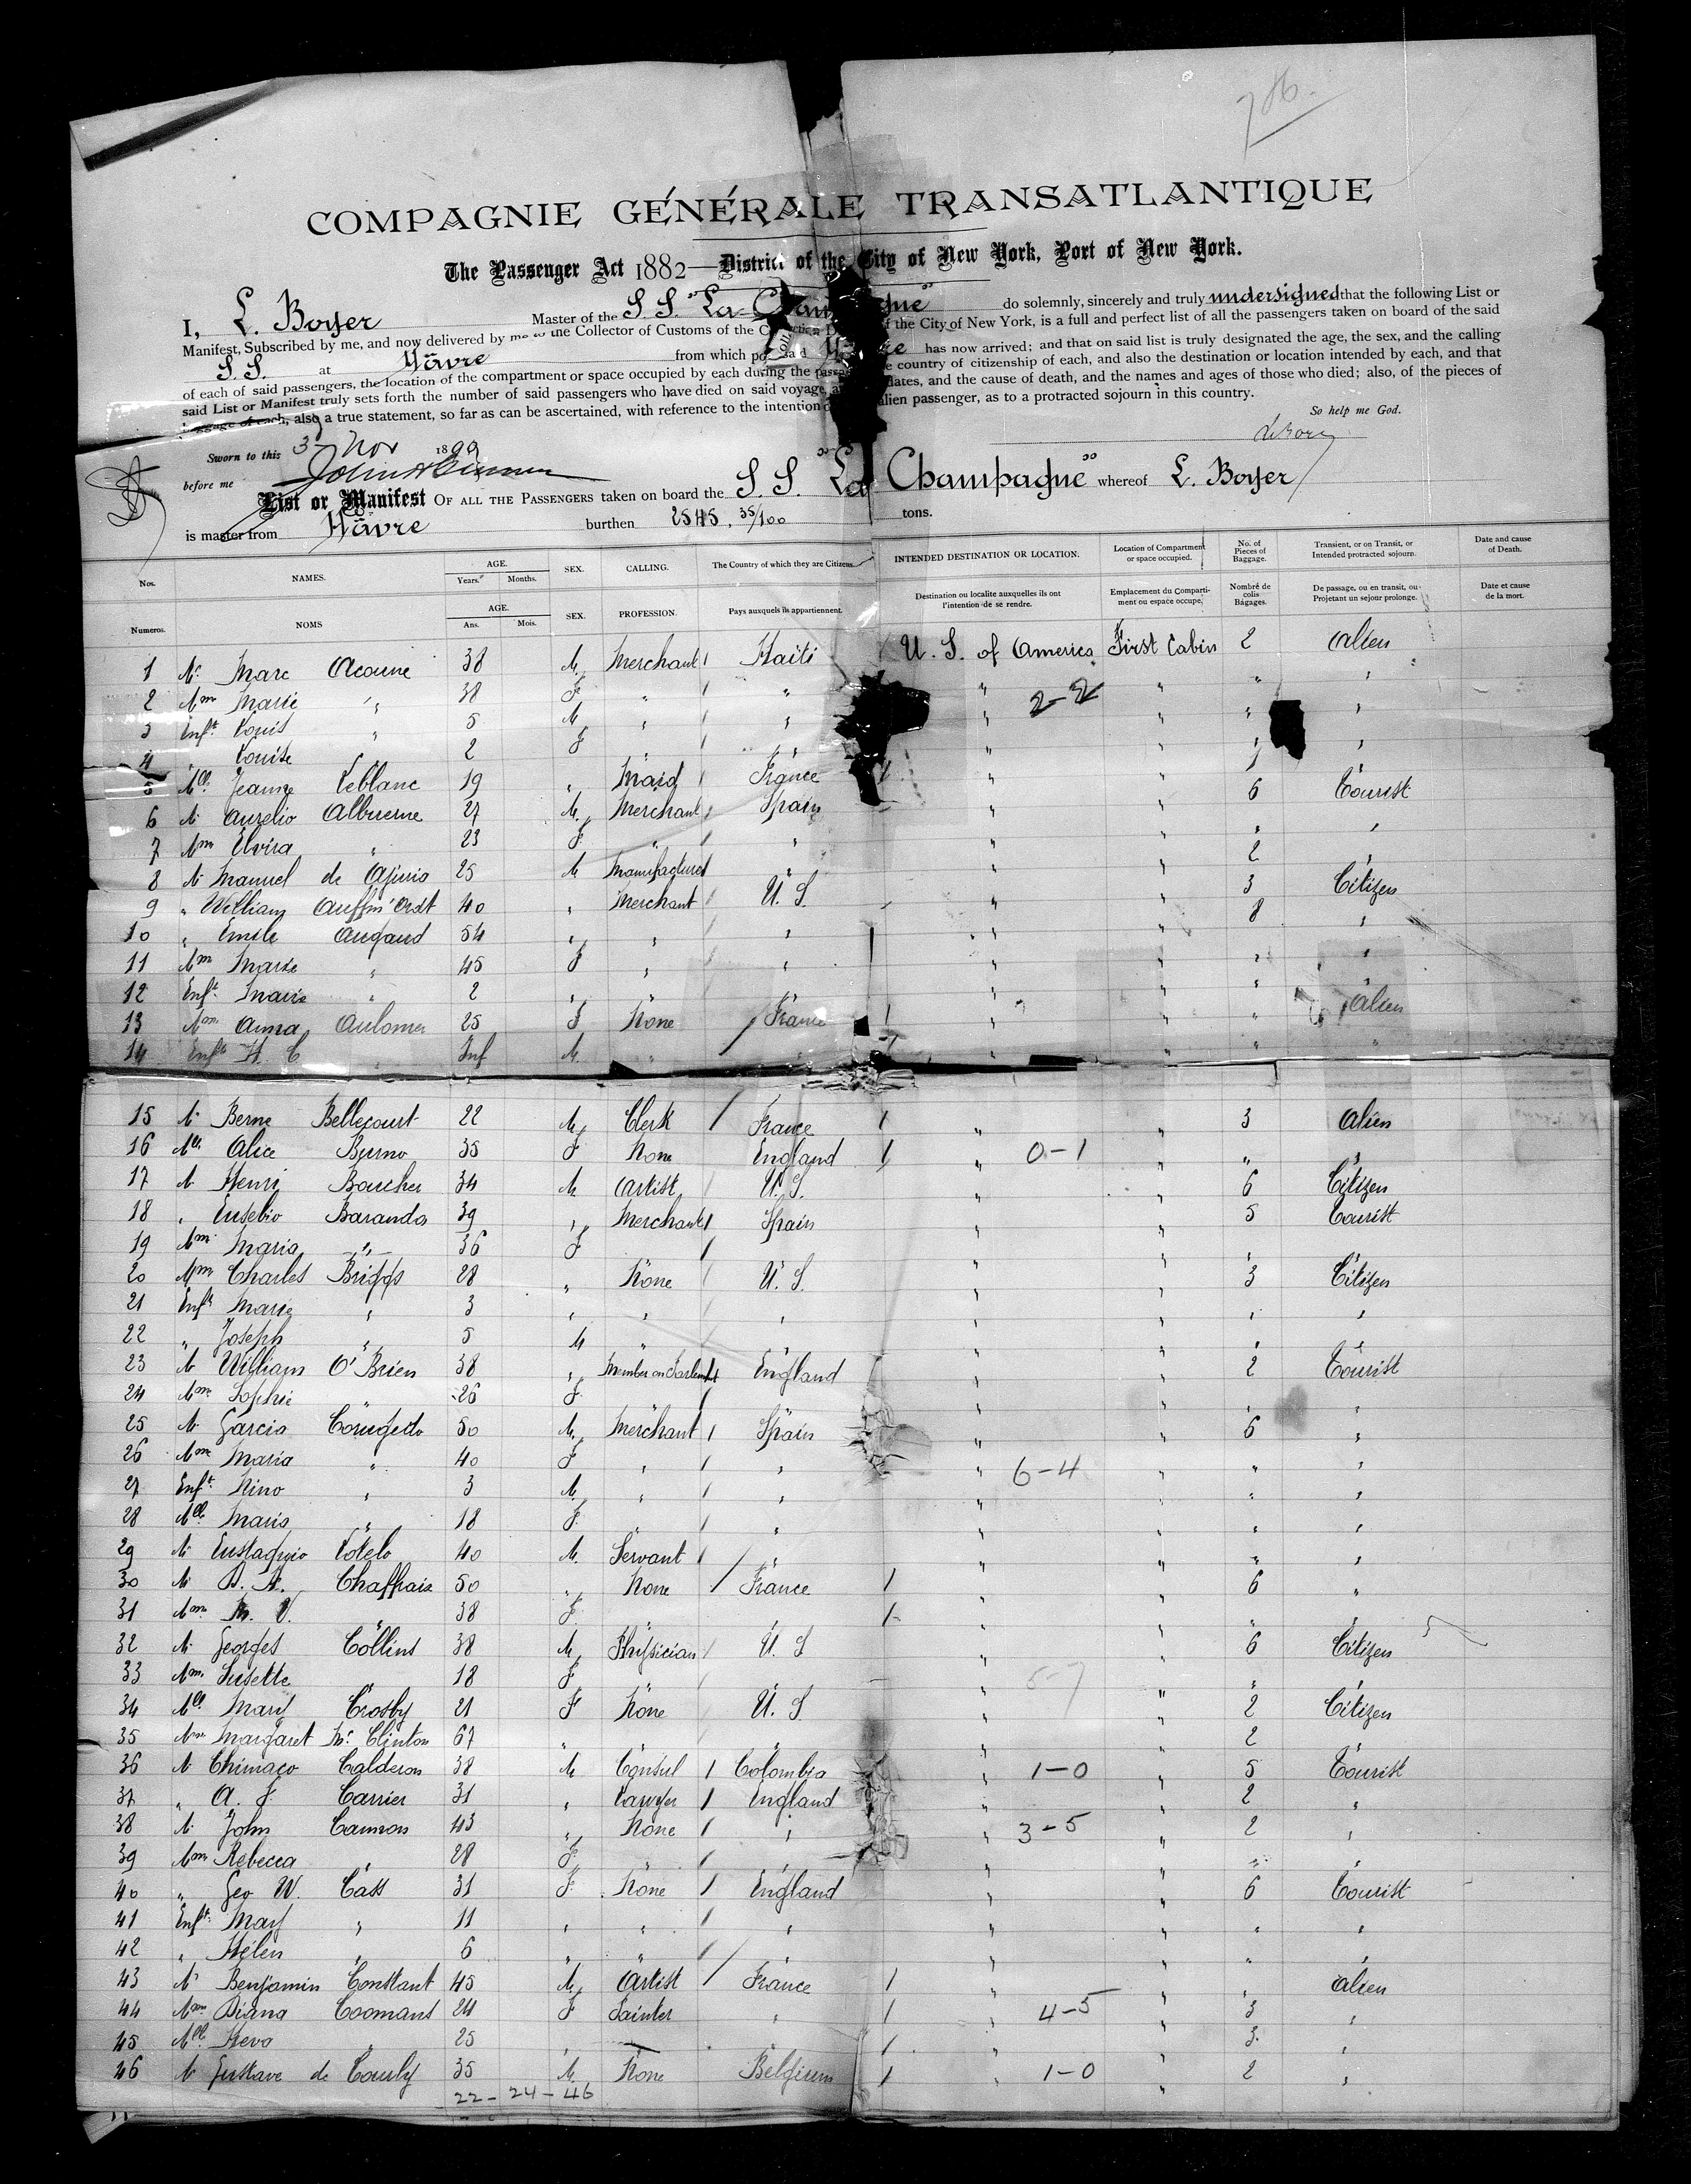 786.
COMPAGNIE GÉNÉRALE TRANSATLANTIQUE
The Passenger Act 1882—District of the City of New York, Port of New York.
I, L. Boyer Master of the S. S. "La Cham gne" do solemnly, sincerely and truly undersigned that the following List or
Manifest, Subscribed by me, and now delivered by me to the Collector of Customs of the of the City of New York, is a full and perfect list of all the passengers taken on board of the said
S. S. at Hâvre from which po said has now arrived; and that on said list is truly designated the age, the sex, and the calling
of each of said passengers, the location of the compartment or space occupied by each during the passage e country of citizenship of each, and also the destination or location intended by each, and that
said List or Manifest truly sets forth the number of said passengers who have died on said voyage, a dates, and the cause of death, and the names and ages of those who died; also, of the pieces of
baggage of each, also a true statement, so far as can be ascertained, with reference to the intention o alien passenger, as to a protracted sojourn in this country.
So help me God.
LBoyer
Sworn to this 3 Nov 1890
before me
List or Manifest OF ALL THE PASSENGERS taken on board the S. S. "La Champagne" whereof L. Boyer
is master from Hâvre burthen 2545, 35/100 tons.
Nos. NAMES. AGE. Years. Months. SEX. CALLING. The Country of which they are Citizens INTENDED DESTINATION OR LOCATION. Location of Compartment or space occupied. No. of Pieces of Baggage. Transient, or on Transit, or Intended protracted sojourn. Date and cause of Death.
Numeros. NOMS AGE. Ans. Mois. SEX. PROFESSION. Pays auxquels ils appartiennent. Destination ou localite auxquelles ils ont l'intention de se rendre. Emplacement du Compartiment ou espace occupe. Nombré de colis Bágages. De passage, ou en transit, ou Projetant un sejour prolonge. Date et cause de la mort.
1 Mr Marc Acoune 38 M. Merchant Haiti U. S. of America First Cabin 2 Alien
2 Mm Marie " 38 F. " " " 2-2 " " "
3 Enft. Louis " 5 M " " " " " "
4 " Louise " 2 F " " " " " "
5 Mlle Jeanne Leblanc 19 " Maid France 1 " " 1
6 M. Aurelio Albuerne 27 M. Merchant Spain " " 6 Tourist
7 Mm Elvira " 23 F. " " " " " "
8 M. Manuel de Ajuria 25 M Manufacturer " " " 2 "
9 " William Auffm'Ordt 40 " Merchant U. S. " " 3 Citizen
10 " Emile Augaud 54 " " " " " 8 "
11 Mm Marie " 45 F " " " " " "
12 Enft. Marie " 2 " " " " " "
13 Mm Anna Aulomer 25 F None France 1 " " " Alien
14 Enft H. C " Inf M. " " 1 " " " "
15 M. Berne Bellecourt 22 M. Clerk France 1 " " 3 Alien
16 Mlle Alice Burno 35 F None England 1 " 0-1 " " "
17 M. Henri Boucher 34 M. Artist U. S. " " 6 Citizen
18 " Eusebio Baranda 39 " Merchant Spain " " 5 Tourist
19 Mm Maria " 36 F " " " "
20 Mm Charles Briggs 28 " None U. S. " " 3 Citizen
21 Enft Marie " 3 " " " " " " "
22 " Joseph " 5 M " " " " " "
23 M William O'Brien 38 " Member on Parlement England " " 2 Tourist
24 Mm Sophie " 26 F. " " " " " "
25 M. Garcia Conugedo 50 M. Merchant Spain " " 6 "
26 Mm Maria " 40 F " " " 6-4 " " "
27 Enft. Nino " 3 M. " " " " " "
28 Mlle Maria " 18 F. " " " " " "
29 M. Eustaquio Votelo 40 M. Servant " " " " "
30 M. D. A. Chaffraix 50 " None France 1 " " 6 "
31 Mm M. V. " 38 F. 1 " " "
32 M. Georges Collins 38 M. Physician U. S " " 6 Citizen
33 Mm. Susette " 18 F " " " 5-7 " " "
34 Mlle Mary Crosby 21 F None U. S " " 2 Citizen
35 Mm Margaret Mc. Clinton 67 " " " " " 2 "
36 M. Chimaco Calderon 38 M Consul Colombia " 1-0 " 5 Tourist
37 " A. J. Carrier 31 " Lawyer England " " 2 "
38 M. John Cannon 43 " None " " 3-5 " 2 "
39 Mm Rebecca " 28 F. " " " " " "
40 " Geo W. Cass 31 F. None England " " 6 Tourist
41 Enft. May " 11 " " " " " " "
42 " Helen " 6 " " " " " " "
43 M. Benjamin Constant 45 M. Artist France 1 " " " Alien
44 Mm Diana Coomans 24 F Painter " 1 " 4-5 " 3 "
45 Mlle Heva " 25 " " 1 " " 3. "
46 M. Gustave de Courly 35 M. None Belgium 1 " 1-0 " 2 "
22 - 24 - 46